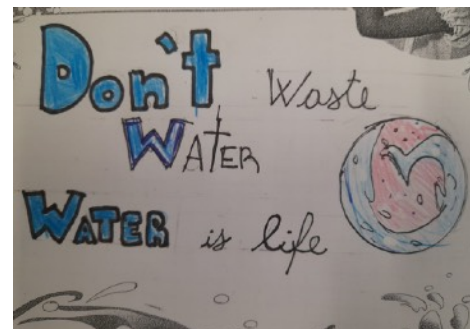 Don't Waste
WATER
WATER is life